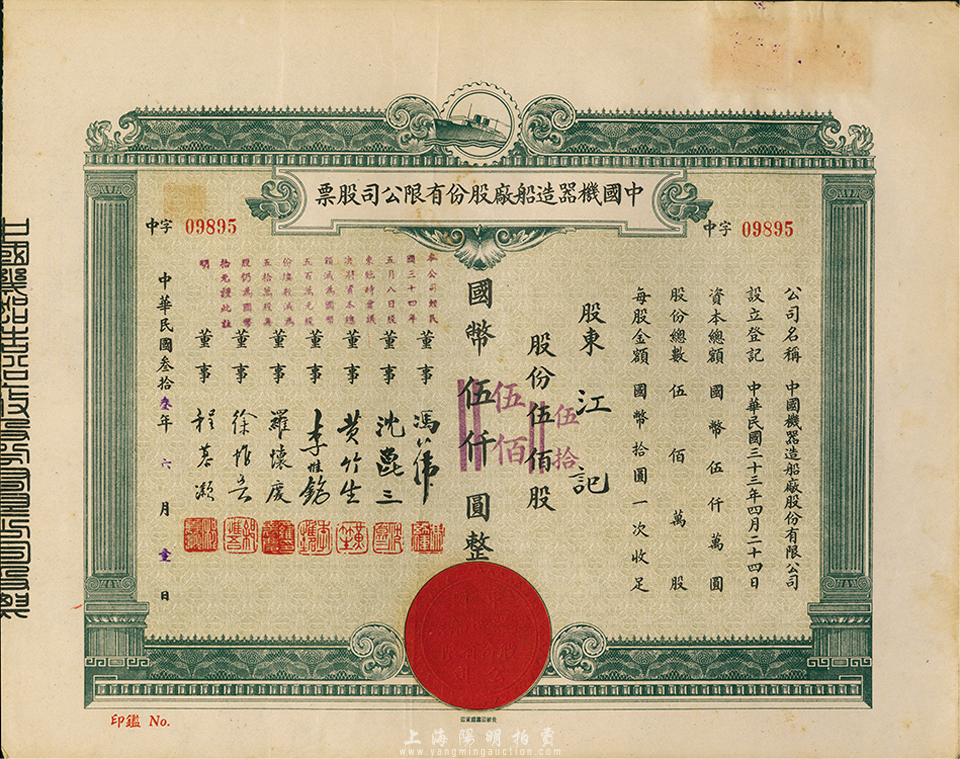 中國機器造船廠股份有限公司股票
中字 09895
中字 09895
公司名稱 中國機器造船廠股份有限公司
設立登記 中華民國三十三年四月二十四日
資本總額 國幣伍仟萬圓
股份總數 伍佰萬股
每股金額 國幣拾圓一次收足
股東 江記
股份伍佰股
伍拾
國幣伍仟圓整
伍佰
本公司經民
國三十四年
五月八日股
東臨時會議
決將資本總
額減為國幣
五百萬元股
份總數減為
五拾萬股每
股仍為國幣
拾元謹此註
明
董事
董事 沈崑三
董事 黃竹生
董事 李維銘
董事 羅懷慶
董事
董事 程慕灝
中華民國叁拾叁年六月壹日
印鑑 No.
上海陽明拍賣
www.yangmingauction.com